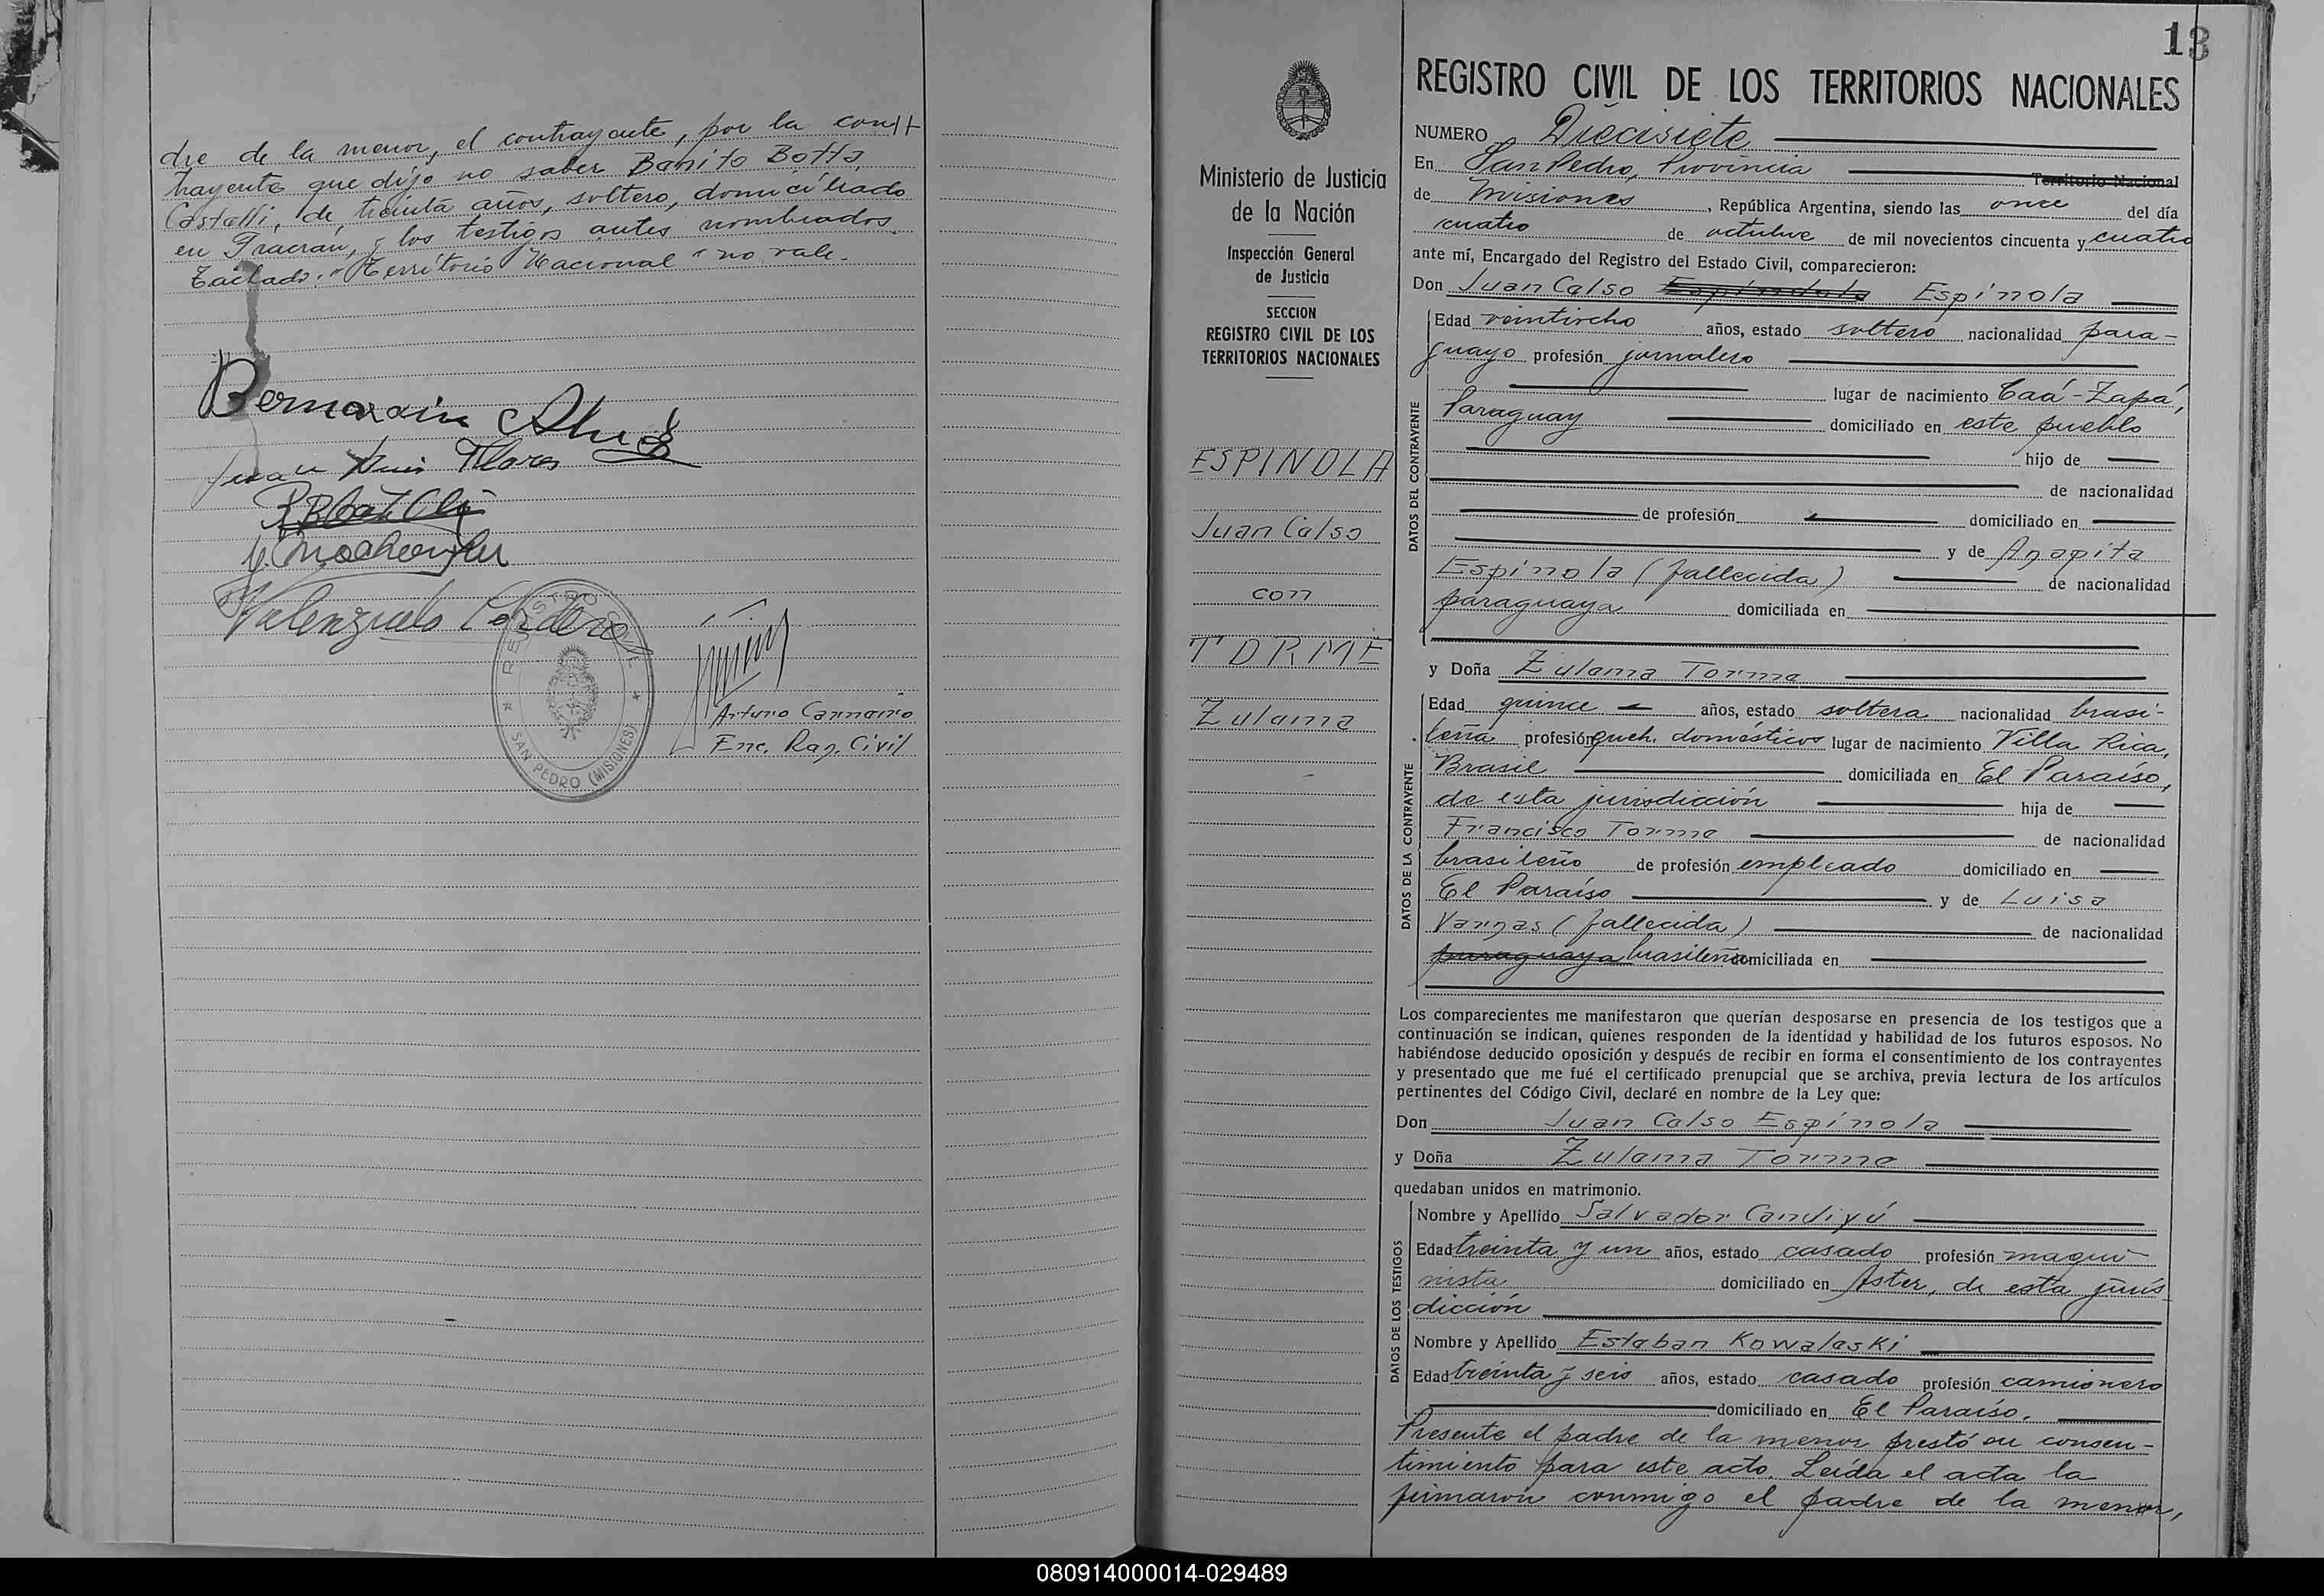 dre de la menor, el contrayente, por la con//-
trayente que dijo no saber Benito Botta
Castelli, de treinta años, soltero, domiciliado
en Pracran, y los testigos antes nombrados.
Tachado: "Territorio Nacional" no vale.
Bernardin
Juan Luis Flores
Valenzuela Cordero
REGISTRO CIVIL
SAN PEDRO (MISIONES)
Arturo Carneiro
Enc. Reg. Civil
13
Ministerio de Justicia
de la Nación
Inspección General
de Justicia
SECCION
REGISTRO CIVIL DE LOS
TERRITORIOS NACIONALES
ESPINOLA
Juan Celso
con
TORME
Zulema
REGISTRO CIVIL DE LOS TERRITORIOS NACIONALES
NUMERO Diecisiete
En San Pedro, Provincia Territorio Nacional
de Misiones, República Argentina, siendo las once del día
cuatro de octubre de mil novecientos cincuenta y cuatro
ante mí, Encargado del Registro del Estado Civil, comparecieron:
Don Juan Celso Espíndola Espínola
DATOS DEL CONTRAYENTE
Edad veintiocho años, estado soltero nacionalidad para-
guayo profesión jornalero
lugar de nacimiento Caá-Zapá,
Paraguay domiciliado en este pueblo
hijo de
de nacionalidad
de profesión domiciliado en
y de Agapita
Espínola (fallecida) de nacionalidad
paraguaya domiciliada en
y Doña Zulema Torme
DATOS DE LA CONTRAYENTE
Edad quince años, estado soltera nacionalidad brasi-
leña profesión queh. domésticos lugar de nacimiento Villa Rica,
Brasil domiciliada en El Paraíso,
de esta jurisdicción hija de
Francisco Torme de nacionalidad
brasileño de profesión empleado domiciliado en
El Paraíso y de Luisa
Vargas (fallecida) de nacionalidad
paraguaya brasileña domiciliada en
Los comparecientes me manifestaron que querían desposarse en presencia de los testigos que a
continuación se indican, quienes responden de la identidad y habilidad de los futuros esposos. No
habiéndose deducido oposición y después de recibir en forma el consentimiento de los contrayentes
y presentado que me fué el certificado prenupcial que se archiva, previa lectura de los artículos
pertinentes del Código Civil, declaré en nombre de la Ley que:
Don Juan Celso Espínola
y Doña Zulema Torme
quedaban unidos en matrimonio.
DATOS DE LOS TESTIGOS
Nombre y Apellido Salvador Candiyú
Edad treinta y un años, estado casado profesión maqui-
nista domiciliado en Aster, de esta juris-
dicción
Nombre y Apellido Esteban Kowaleski
Edad treinta y seis años, estado casado profesión camionero
domiciliado en El Paraíso.
Presente el padre de la menor prestó su consen-
timiento para este acto. Leída el acta la
firmaron conmigo el padre de la menor,
080914000014-029489